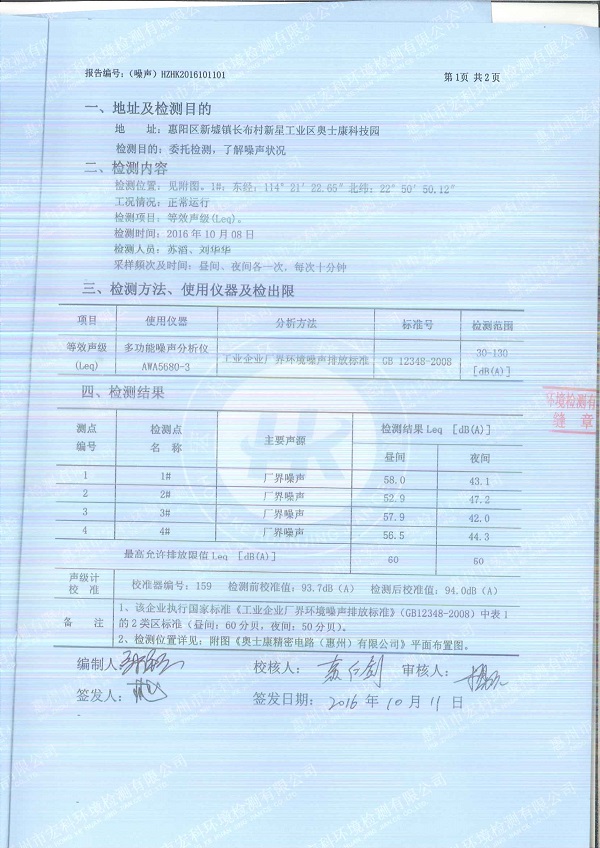 报告编号:（噪声）HZHK2016101101
第1页 共2页
一、地址及检测目的
地 址: 惠阳区新墟镇长布村新星工业区奥士康科技园
检测目的: 委托检测，了解噪声状况
二、检测内容
检测位置: 见附图。1#: 东经: 114° 21′ 22.65″ 北纬: 22° 50′ 50.12″
工况情况: 正常运行
检测项目: 等效声级(Leq)。
检测时间: 2016 年 10 月 08 日
检测人员: 苏滔、刘华华
采样频次及时间: 昼间、夜间各一次，每次十分钟
三、检测方法、使用仪器及检出限
项目 使用仪器 分析方法 标准号 检测范围
等效声级 (Leq) 多功能噪声分析仪 AWA5680-3 工业企业厂界环境噪声排放标准 GB 12348-2008 30-130 [dB(A)]
四、检测结果
测点编号 检测点名 称 主要声源 检测结果 Leq [dB(A)]
昼间 夜间
1 1# 厂界噪声 58.0 43.1
2 2# 厂界噪声 52.9 47.2
3 3# 厂界噪声 57.9 42.0
4 4# 厂界噪声 56.5 44.3
最高允许排放限值 Leq [dB(A)] 60 50
声级计校 准 校准器编号: 159 检测前校准值: 93.7dB（A） 检测后校准值: 94.0dB（A）
备 注 1、该企业执行国家标准《工业企业厂界环境噪声排放标准》（GB12348-2008）中表1
的2类区标准（昼间: 60分贝，夜间: 50分贝）。
2、检测位置详见: 附图《奥士康精密电路（惠州）有限公司》平面布置图。
编制人: 校核人: 审核人:
签发人: 签发日期: 2016 年 10 月 11 日
环境检测有
缝 章
惠州市宏科环境检测有限公司